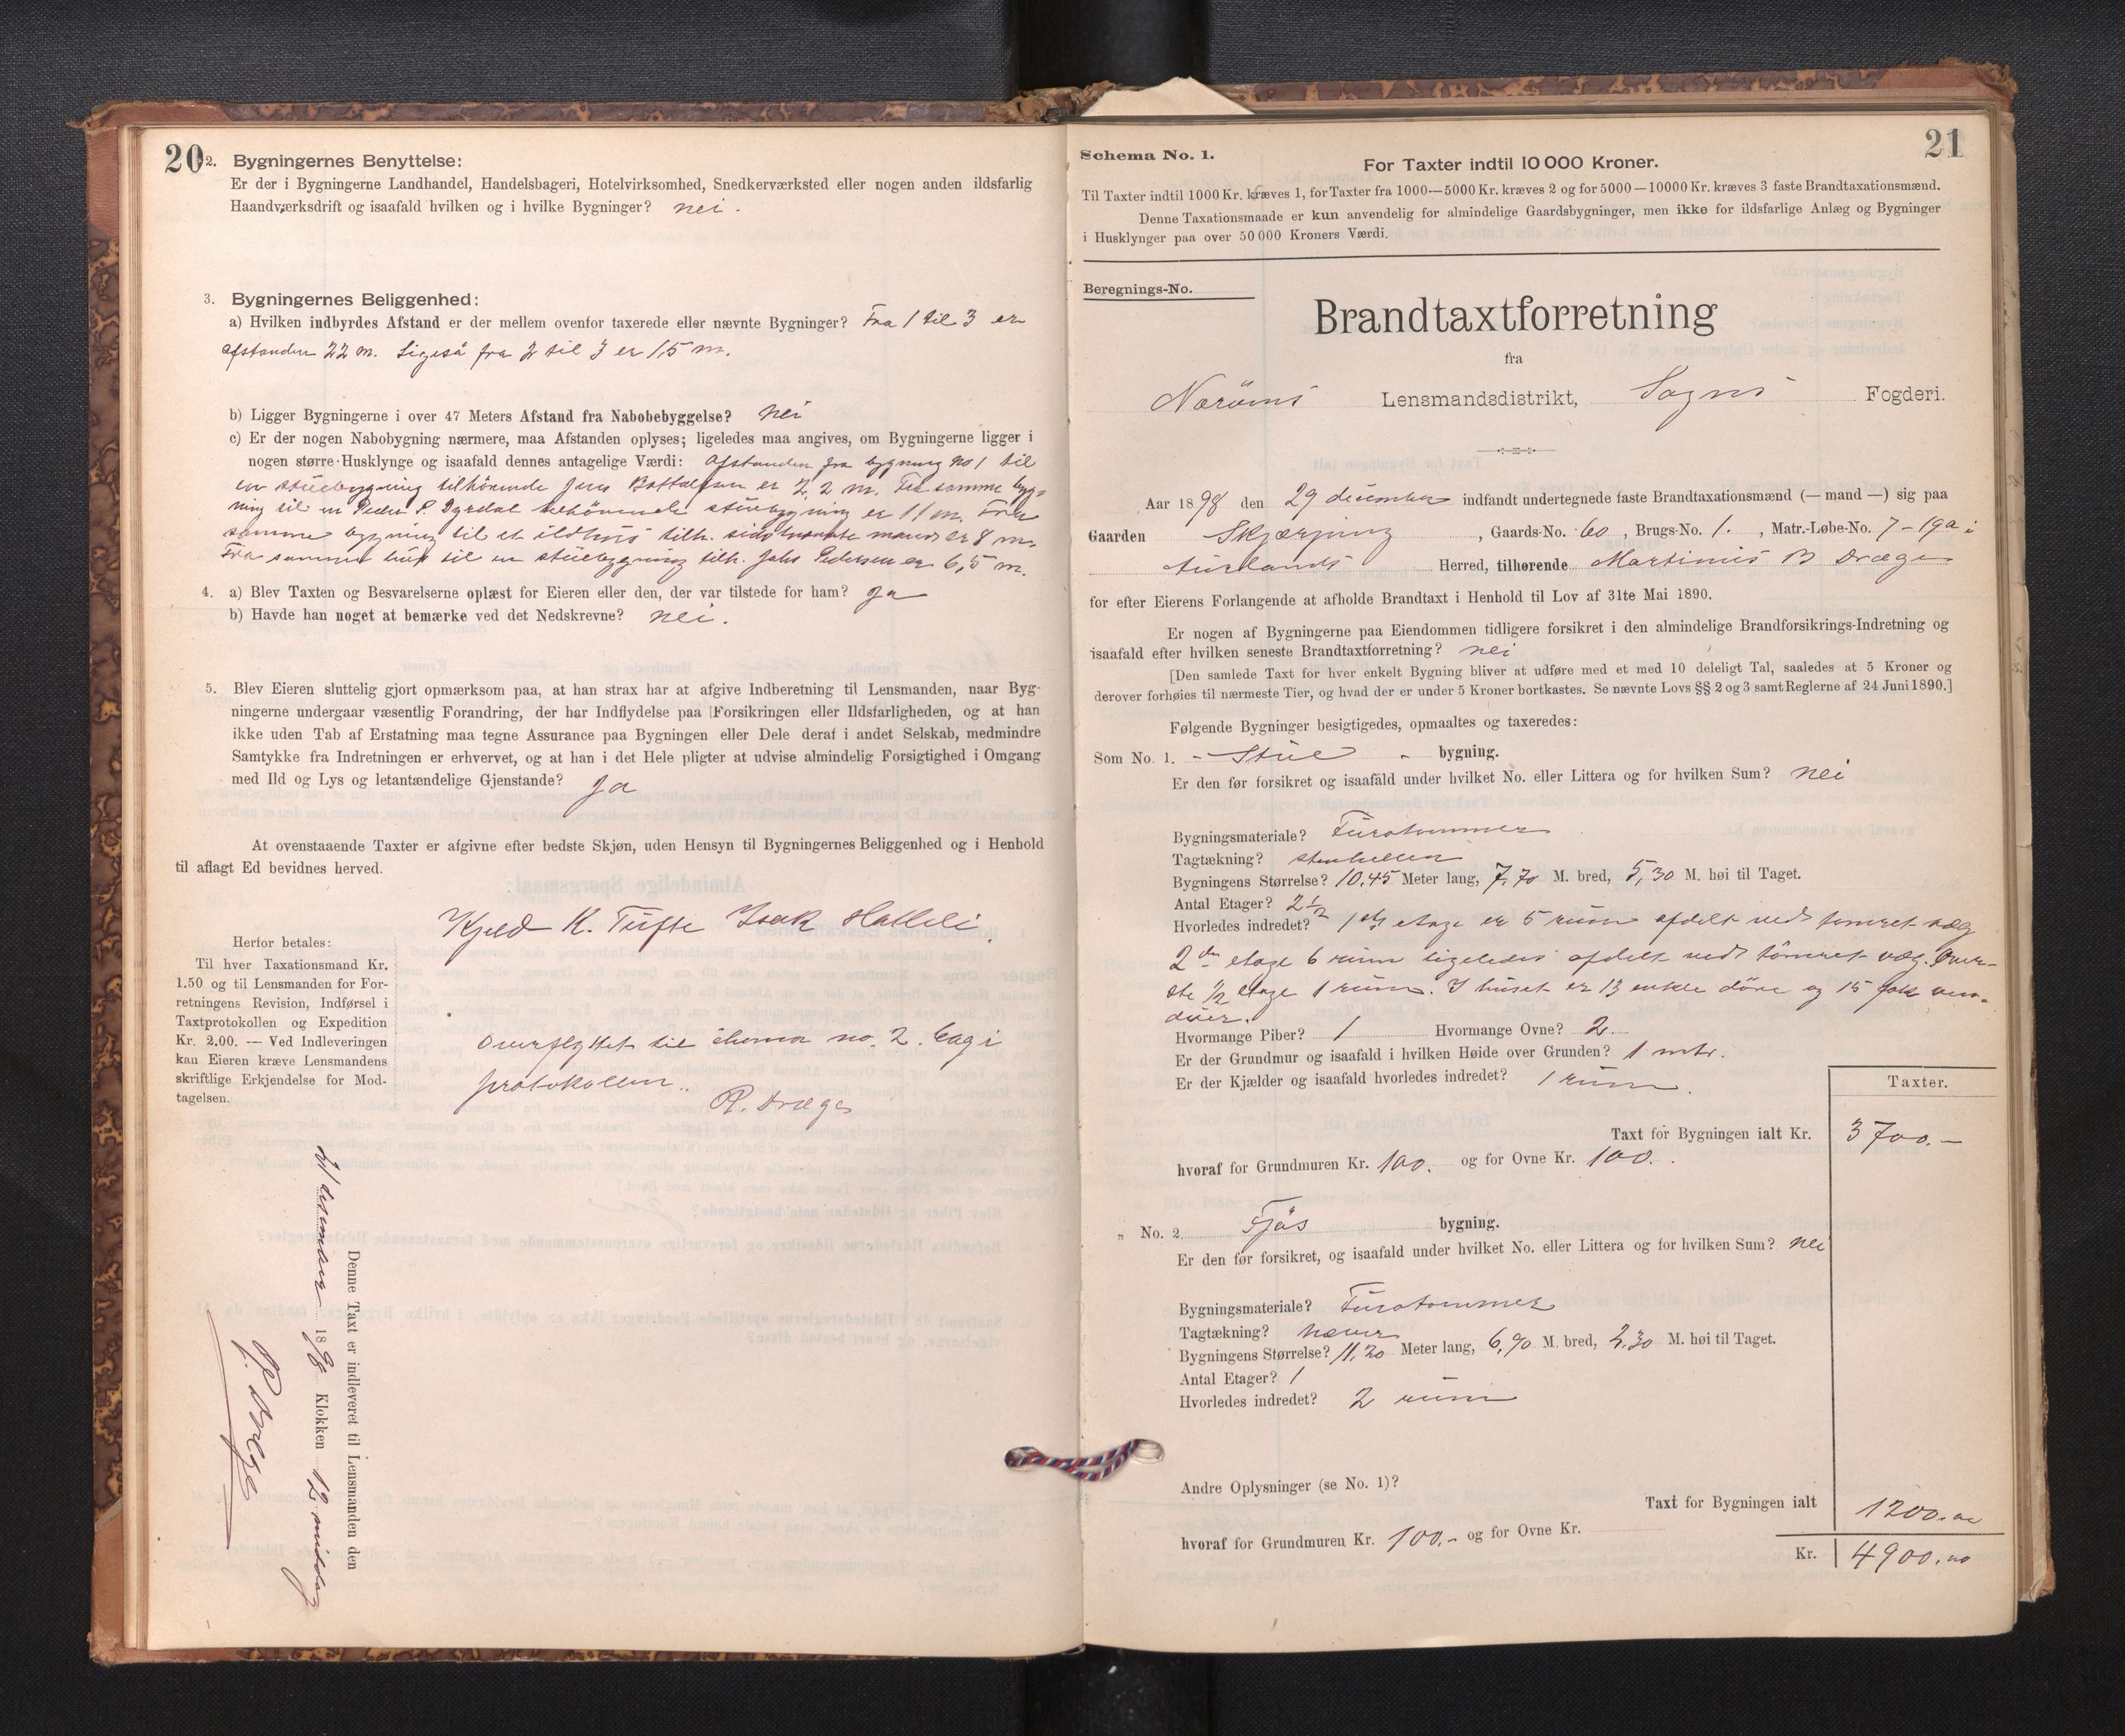 20
2. Bygningernes Benyttelse:
Er der i Bygningerne Landhandel, Handelsbageri, Hotelvirksomhed, Snedkerværksted eller nogen anden ildsfarlig
Haandværksdrift og isaafald hvilken og i hvilke Bygninger? nei.
3. Bygningernes Beliggenhed:
a) Hvilken indbyrdes Afstand er der mellem ovenfor taxerede eller nævnte Bygninger? Fra 1 til 3 er
afstanden 22 m. Ligeså fra 2 til 3 er 1,5 m.
b) Ligger Bygningerne i over 47 Meters Afstand fra Nabobebyggelse? nei
c) Er der nogen Nabobygning nærmere, maa Afstanden oplyses; ligeledes maa angives, om Bygningerne ligger i
nogen større Husklynge og isaafald dennes antagelige Værdi: Afstanden fra bygning no 1 til
en stuebygning tilhörende Jens er 2,2 m. Fra samme byg-
ning til en Peder P. Dyrdal tilhörende stuebygning er 11 m. Fra
samme bygning til et ildhus tilh. sidstnævnte mand er 8 m.
Fra samme hus til en stuebygning tilh. Johs Pedersen er 6,5 m.
4. a) Blev Taxten og Besvarelserne oplæst for Eieren eller den, der var tilstede for ham? Ja
b) Havde han noget at bemærke ved det Nedskrevne? nei.
5. Blev Eieren sluttelig gjort opmærksom paa, at han strax har at afgive Indberetning til Lensmanden, naar Byg-
ningerne undergaar væsentlig Forandring, der har Indflydelse paa Forsikringen eller Ildsfarligheden, og at han
ikke uden Tab af Erstatning maa tegne Assurance paa Bygningen eller Dele deraf i andet Selskab, medmindre
Samtykke fra Indretningen er erhvervet, og at han i det Hele pligter at udvise almindelig Forsigtighed i Omgang
med Ild og Lys og letantændelige Gjenstande? Ja
At ovenstaaende Taxter er afgivne efter bedste Skjøn, uden Hensyn til Bygningernes Beliggenhed og i Henhold
til aflagt Ed bevidnes herved.
Kjeld K. Tufte Isak Holleli
Herfor betales:
Til hver Taxationsmand Kr.
1.50 og til Lensmanden for For-
retningens Revision, Indførsel i
Taxtprotokollen og Expedition
Kr. 2.00. — Ved Indleveringen
kan Eieren kræve Lensmandens
skriftlige Erkjendelse for Mod-
tagelsen.
Overflyttet til shema no. 2. bag i
protokollen.
R. Dræge
Denne Taxt er indleveret til Lensmanden den
31 desember 1898 Klokken 12 middag
R. Dræge
21
Schema No. 1.
For Taxter indtil 10 000 Kroner.
Til Taxter indtil 1000 Kr. kræves 1, for Taxter fra 1000—5000 Kr. kræves 2 og for 5000—10000 Kr. kræves 3 faste Brandtaxationsmænd.
Denne Taxationsmaade er kun anvendelig for almindelige Gaardsbygninger, men ikke for ildsfarlige Anlæg og Bygninger
i Husklynger paa over 50 000 Kroners Værdi.
Beregnings-No.
Brandtaxtforretning
fra
Naröens Lensmandsdistrikt, Sogns Fogderi.
Aar 1898 den 29 december indfandt undertegnede faste Brandtaxationsmænd (— mand —) sig paa
Gaarden Skjærping, Gaards-No. 60, Brugs-No. 1., Matr.-Løbe-No. 7-19a i
Aurlands Herred, tilhørende Martinus B Dræge
for efter Eierens Forlangende at afholde Brandtaxt i Henhold til Lov af 31te Mai 1890.
Er nogen af Bygningerne paa Eiendommen tidligere forsikret i den almindelige Brandforsikrings-Indretning og
isaafald efter hvilken seneste Brandtaxtforretning? nei
[Den samlede Taxt for hver enkelt Bygning bliver at udføre med et med 10 deleligt Tal, saaledes at 5 Kroner og
derover forhøies til nærmeste Tier, og hvad der er under 5 Kroner bortkastes. Se nævnte Lovs §§ 2 og 3 samt Reglerne af 24 Juni 1890.]
Følgende Bygninger besigtigedes, opmaaltes og taxeredes:
Som No. 1. - Stue - bygning.
Er den før forsikret og isaafald under hvilket No. eller Littera og for hvilken Sum? nei
Bygningsmateriale? Furutømmer
Tagtækning? stenheller
Bygningens Størrelse? 10,45 Meter lang, 7,70 M. bred, 5,30 M. høi til Taget.
Antal Etager? 2½
Hvorledes indredet? 1ste etage er 5 rum afdelt ved tømret væg
2den etage 6 rum ligeledes afdelt ved tømret væg. Øver-
ste ½ etage 1 rum. I huset er 13 enkle döre og 15 fak vin-
duer.
Hvormange Piber? 1 Hvormange Ovne? 2.
Er der Grundmur og isaafald i hvilken Høide over Grunden? 1 mtr.
Er der Kjælder og isaafald hvorledes indredet? 1 rum.
Taxter.
Taxt for Bygningen ialt Kr. 3700.-
hvoraf for Grundmuren Kr. 100. og for Ovne Kr. 100.
„ No. 2 Fjös bygning.
Er den før forsikret, og isaafald under hvilket No. eller Littera og for hvilken Sum? nei
Bygningsmateriale? Furutømmer
Tagtækning? næver
Bygningens Størrelse? 11,20 Meter lang, 6,90 M. bred, 2,30 M. høi til Taget.
Antal Etager? 1
Hvorledes indredet? 2 rum
Andre Oplysninger (se No. 1)?
Taxt for Bygningen ialt 1200.00
hvoraf for Grundmuren Kr. 100.- og for Ovne Kr.
Kr. 4900.00